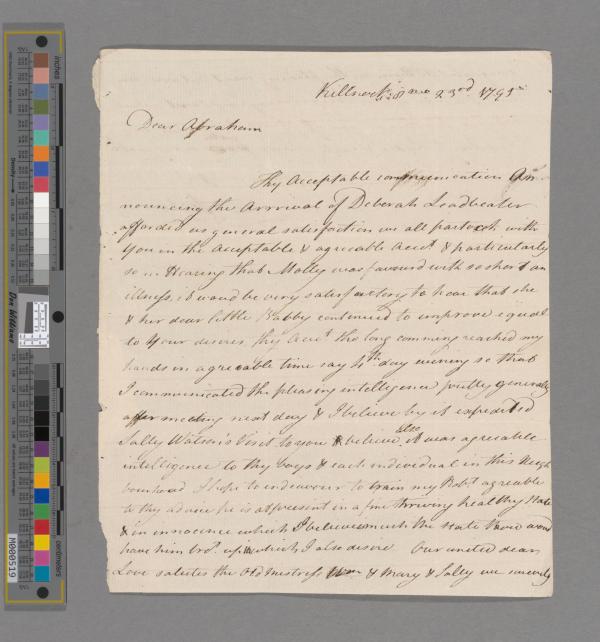 8 mo 23rd 1795
Dear Abraham
Thy Acceptable communication An
nouncing the Arrival of Deberah Leadbeater
afforded us general satisfaction we all partook with
you in the acceptable & agreeable Acct & particularly
so in Hearing that Molly was favourd with so short an
illness, it woud be very satisfactory to hear that she
& her dear little Babby continued to improve equal
to your desires, thy Acct tho long comming reached my
hands in agreeable time say 4th day evening so that
I communicated the pleasing intelligence pretty generally
after meeting next day & I believe by it expedited
Sally Watson's Visit to you & believe also it was agreeable
intelligence to thy boys & each individual in this Neigh
bourhood I hope to endeavour to train my Robt agreeable
to thy advice he is at present in a fine thriving healthy State
& in innocence which I believe is much the state thou woud
have him bro.t up in which I also desire Our united dear
Love salutes the Old mistress Wm & Mary & Sally we sincerely
inches
centimeters
Density
Don Williams
M000519